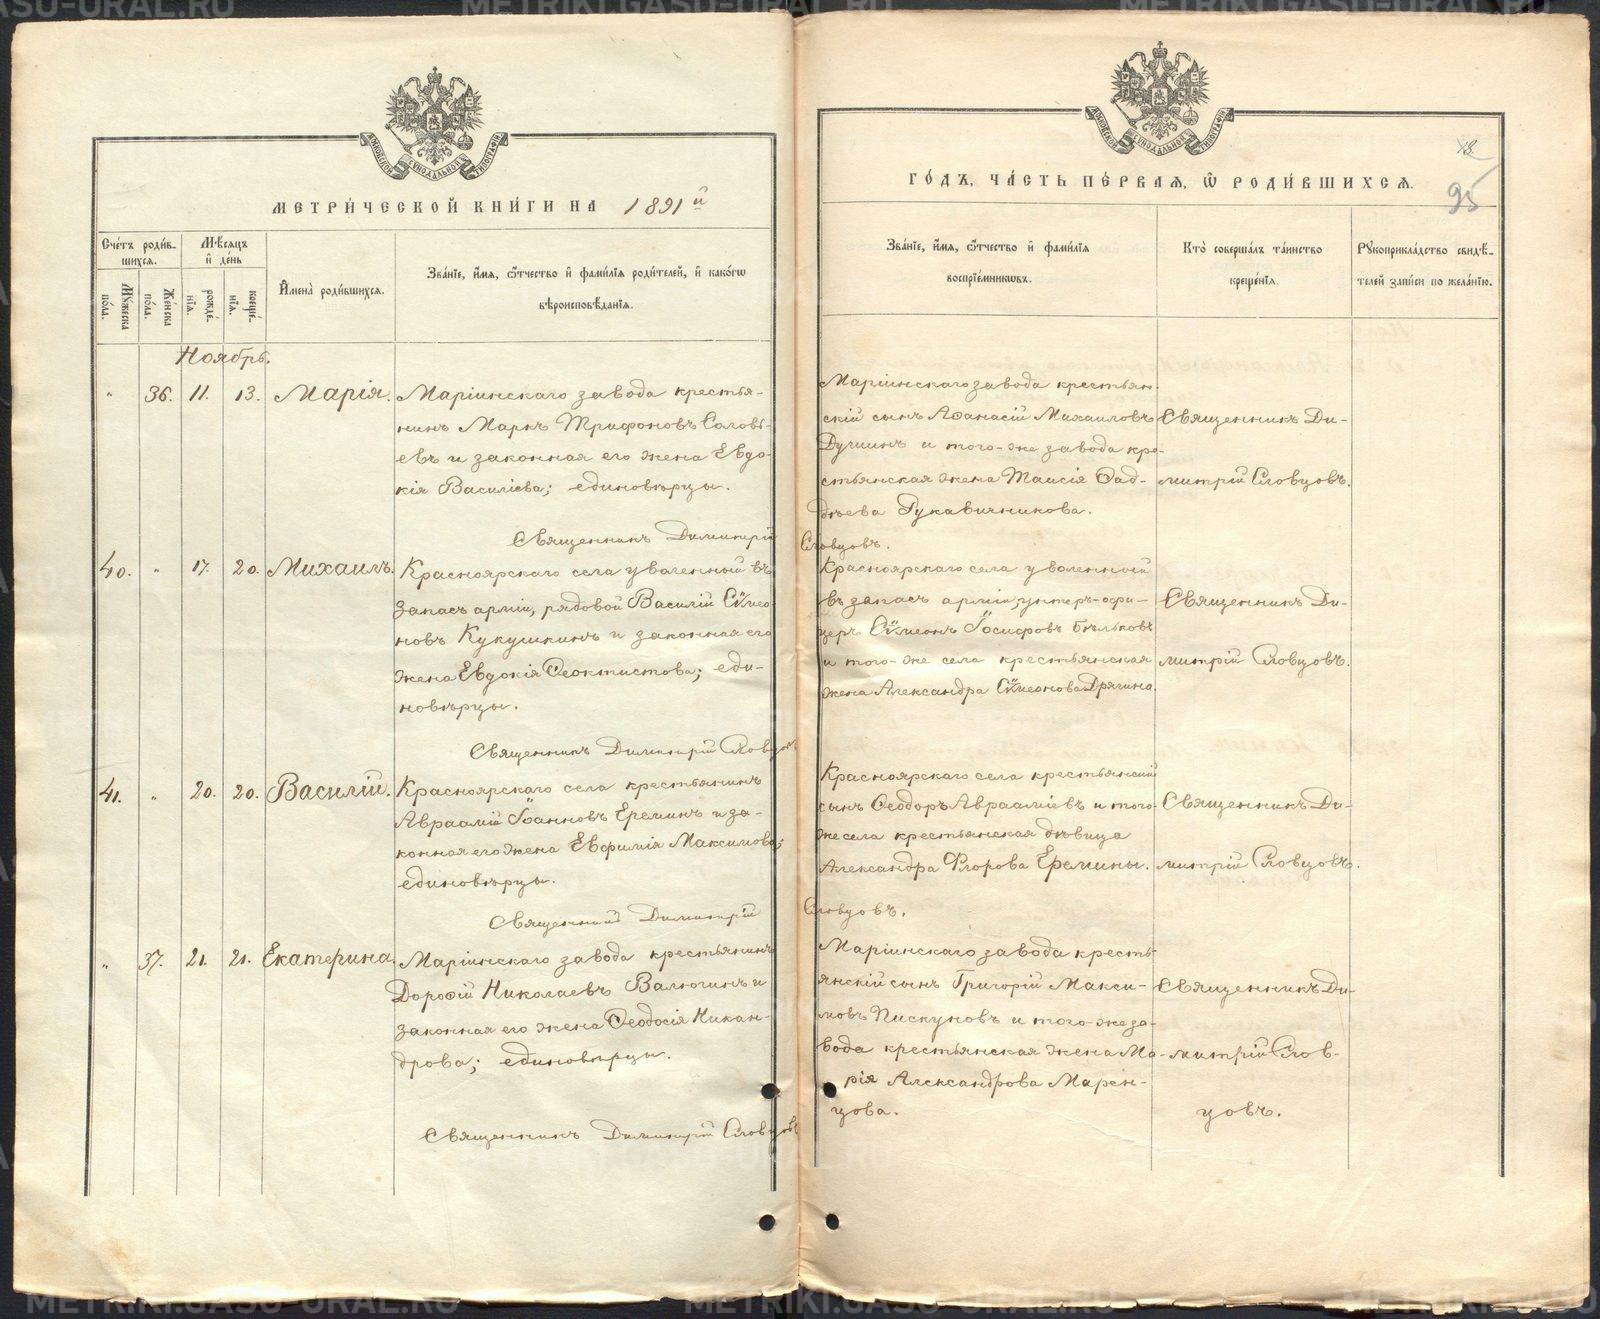 МЕТРИ́ЧЕСКОЙ КНИ́ГИ НА 1891й
Сче́тъ роди́в-
шихся.
Мѣ́сяцъ
и҆ де́нь
Мꙋ́жеска
по́ла.
Же́нска
по́ла.
рожде́-
нїѧ.
креще́-
нїѧ.
И҆мена̀ роди́вшихсѧ.
Зва́нїе, и҆́мѧ, ѻ҆́тчество и҆ фами́лїѧ роди́телей, и҆ како́гѡ
вѣроисповѣ́данїѧ.
Ноябрь.
" 36. 11. 13. Марія.
Маріинскаго завода крестья-
нинъ Маркъ Трифоновъ Соловь-
евъ и законная его жена Евдо-
кія Василіева; единовѣрцы.
Священникъ Димитрій
Словцовъ.
40. " 17. 20. Михаилъ.
Красноярскаго села уволенный въ
запасъ арміи, рядовой Василій Сѵмео-
новъ Кукушкинъ и законная его
жена Евдокія Ѳеоктистова; еди-
новѣрцы.
Священникъ Димитрій Словцовъ
41. " 20. 20. Василій.
Красноярскаго села крестьянинъ
Авраамій Іоанновъ Ереминъ и за-
конная его жена Евфимія Максимова;
единовѣрцы.
Священникъ Димитрій
Словцовъ.
" 37. 21. 21. Екатерина.
Маріинскаго завода крестьянинъ
Дороѳій Николаевъ Валюгинъ и
законная его жена Ѳеодосія Никан-
дрова; единовѣрцы.
Священникъ Димитрій Словцовъ
18.
95
ГО́ДЪ, ЧА́СТЬ ПЕ́РВАЯ, Ѡ҆ РОДИ́ВШИХСЯ.
Зва́нїе, и҆́мѧ, ѻ҆́тчество и҆ фами́лїѧ
воспрїе́мникѡвъ.
Кто̀ соверша́лъ та́инство
креще́нїѧ.
Рꙋкоприкла́дство свидѣ́-
телей за́писи по жела́нїю.
Маріинскаго завода крестьян-
скій сынъ Аѳанасій Михаиловъ
Душинъ и того-же завода кре-
стьянская жена Таисія Ѳад-
дѣева Рукавичникова.
Священникъ Ди-
митрій Словцовъ.
Красноярскаго села уволенный
въ запасъ арміи, унтеръ-офи-
церъ Сѵмеонъ Іосифовъ Бѣльковъ
и того-же села крестьянская
жена Александра Сѵмеонова Дрягина.
Священникъ Ди-
митрій Словцовъ.
Красноярскаго села крестьянскій
сынъ Ѳеодоръ Авраамієвъ и того-
же села крестьянская дѣвица
Александра Флорова Еремины.
Священникъ Ди-
митрій Словцовъ.
Маріинскаго завода кресть-
янскій сынъ Григорій Макси-
мовъ Пискуновъ и того-же за-
вода крестьянская жена Ма-
рія Александрова Марен-
цова.
Священникъ Ди-
митрій Слов-
цовъ.
МОСКОВСКОЙ СѴНОДАЛЬНОЙ ТИПОГРАФІИ
МОСКОВСКОЙ СѴНОДАЛЬНОЙ ТИПОГРАФІИ
METRIKI.GASU-URAL.RU